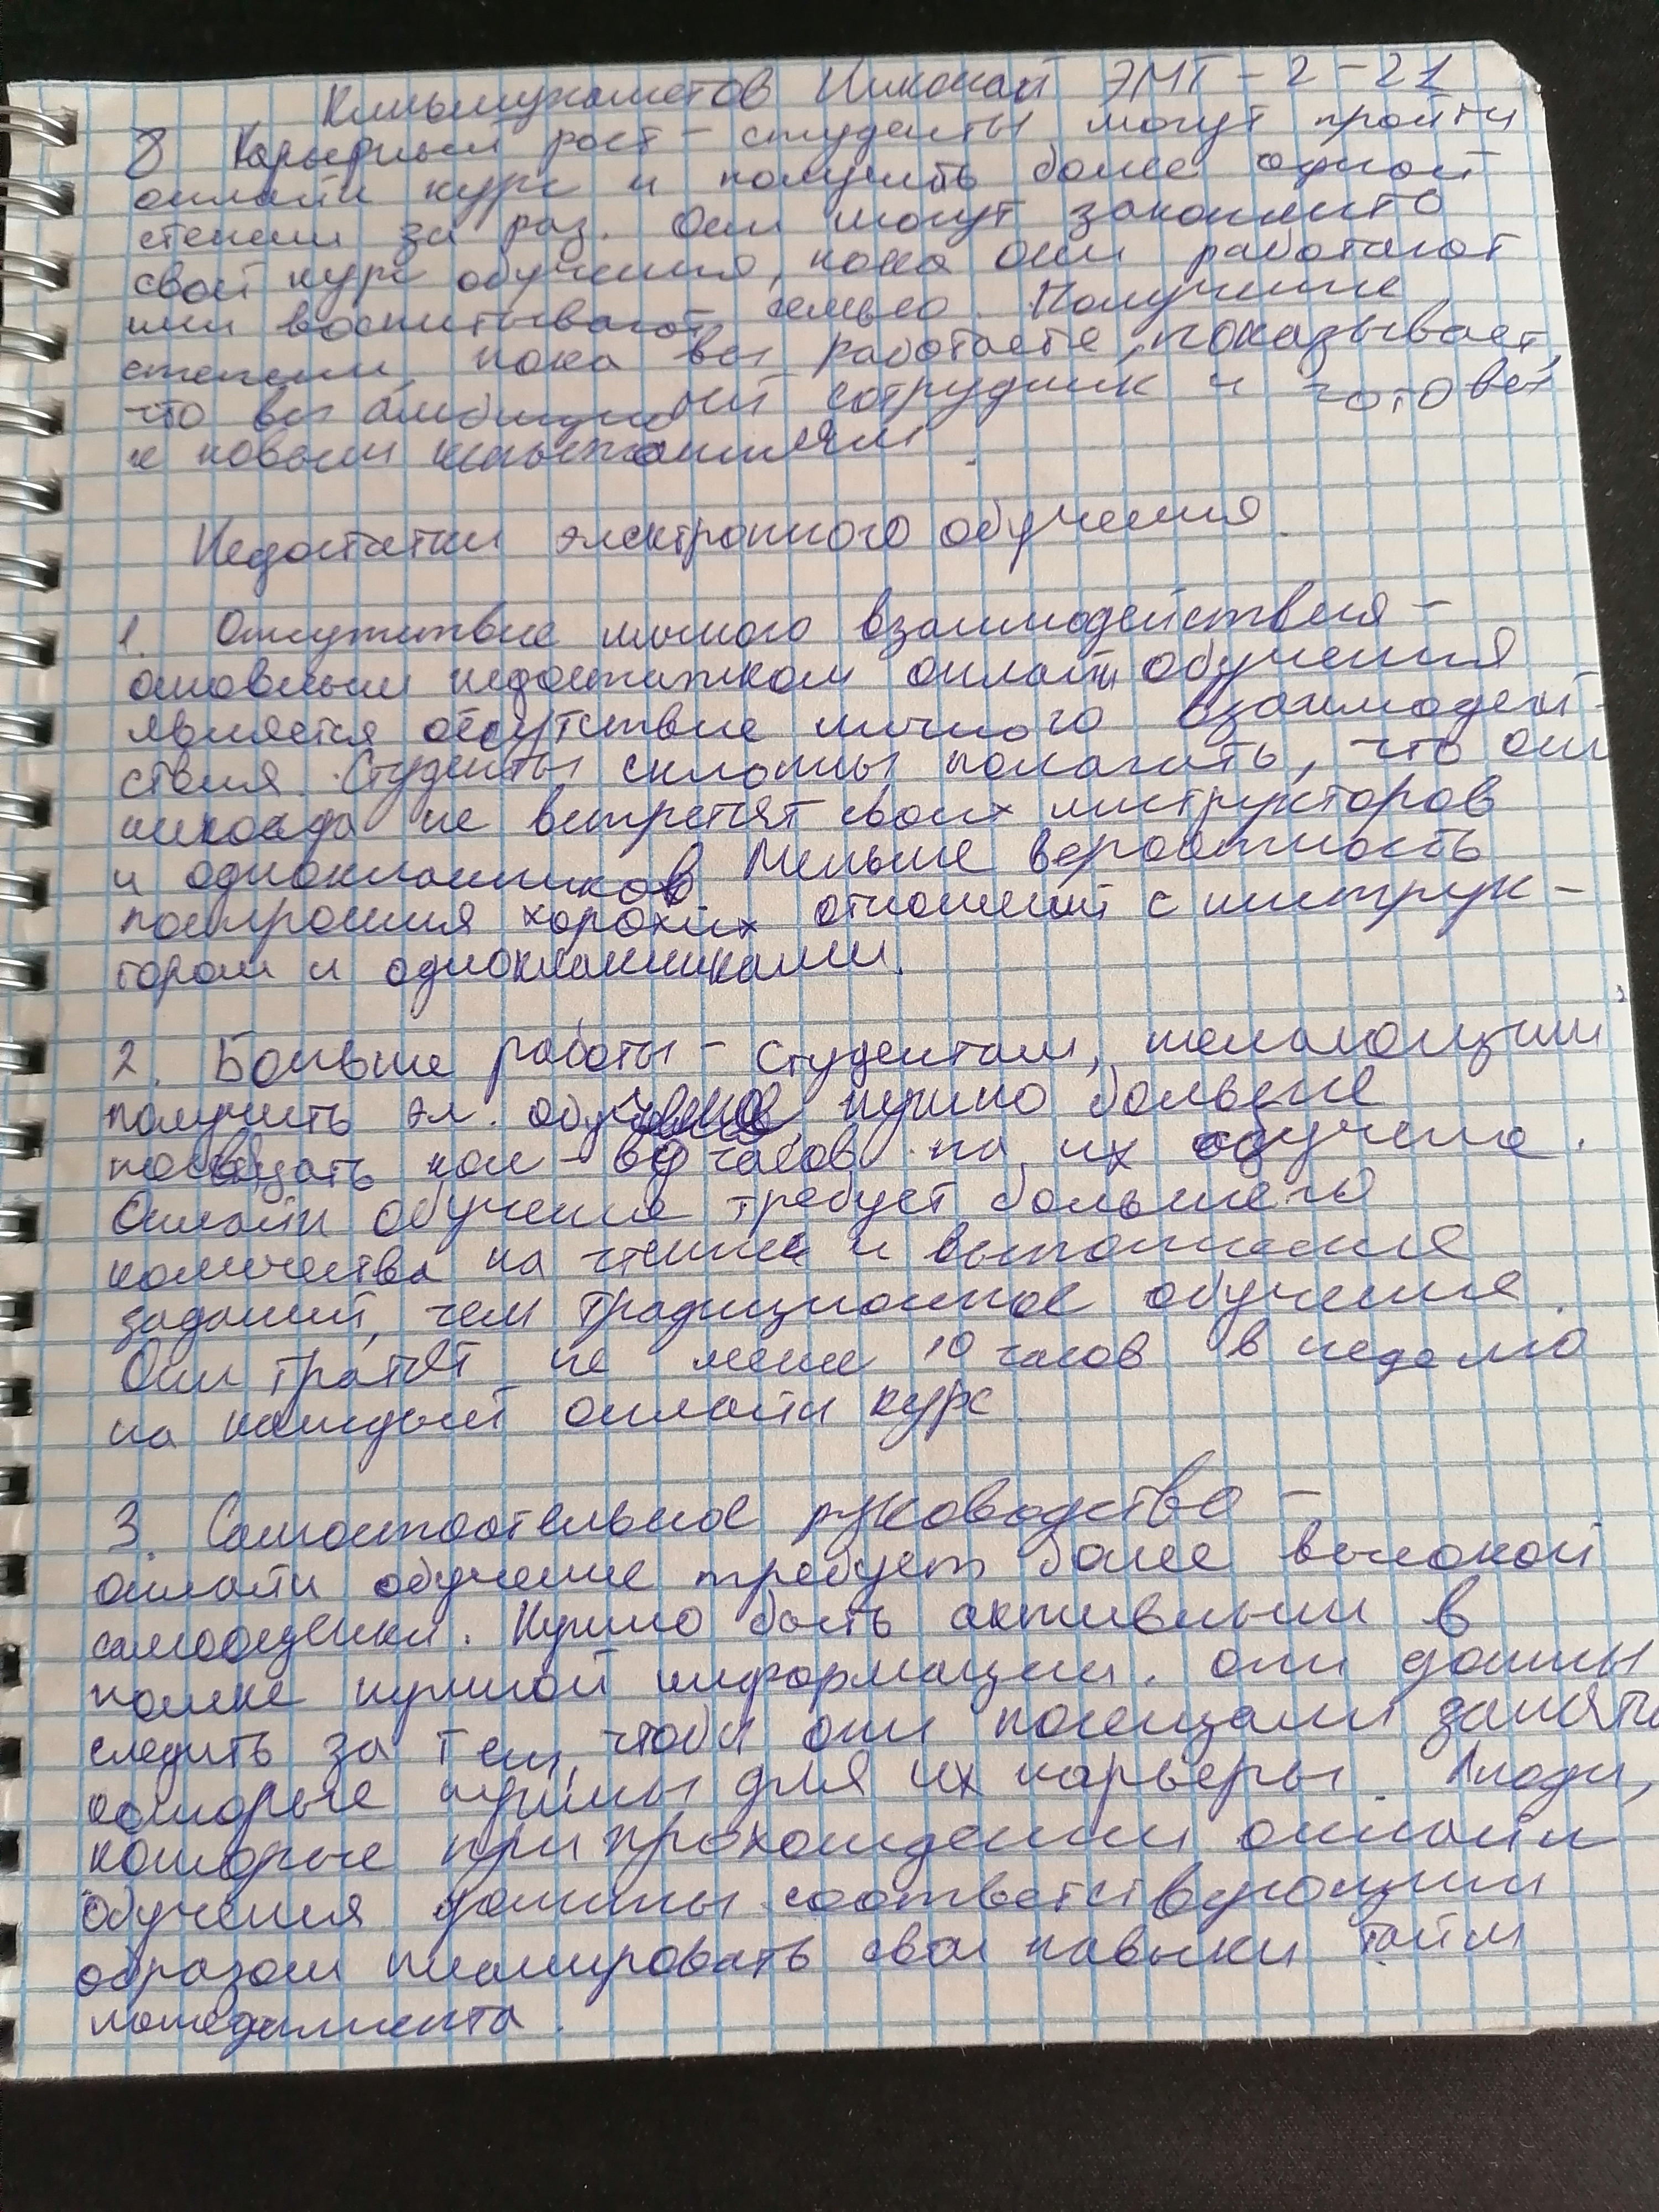 Кильмухаметов Николай ЭМТ-2-21
8 Карьерный рост - студенты могут пройти
онлайн курс и получить более одной
степени за раз. Они могут закончить
свой курс обучения, пока они работают
или воспитывают семью. Получение
степени, пока вы работаете, показывает,
что вы амбициозный сотрудник и готовы
к новым испытаниям.
Недостатки электронного обучения.
1. Отсутствие личного взаимодействия -
основным недостатком онлайн обучения
является отсутствие личного взаимодей-
ствия. Студенты склонны полагать, что они
никогда не встретят своих инструкторов
и одноклассников. Меньше вероятность
построения хороших отношений с инструк-
тором и одноклассниками.
2. Больше работы - студентам, желающим
получить эл. обучение нужно больше
посвящать кол-во часов на их обучение.
Онлайн обучение требует большего
количества на чтение и выполнения
заданий, чем традиционное обучение.
Они тратят не менее 10 часов в неделю
на каждый онлайн курс.
3. Самостоятельное руководство -
онлайн обучение требует более высокой
самооценки. Нужно быть активным в
поиске нужной информации. они должны
следить за тем, чтобы они посещали занятия
которые нужны для их карьеры. Люди,
которые при прохождении онлайн
обучения должны соответствующим
образом планировать свои навыки тайм
менеджмента.